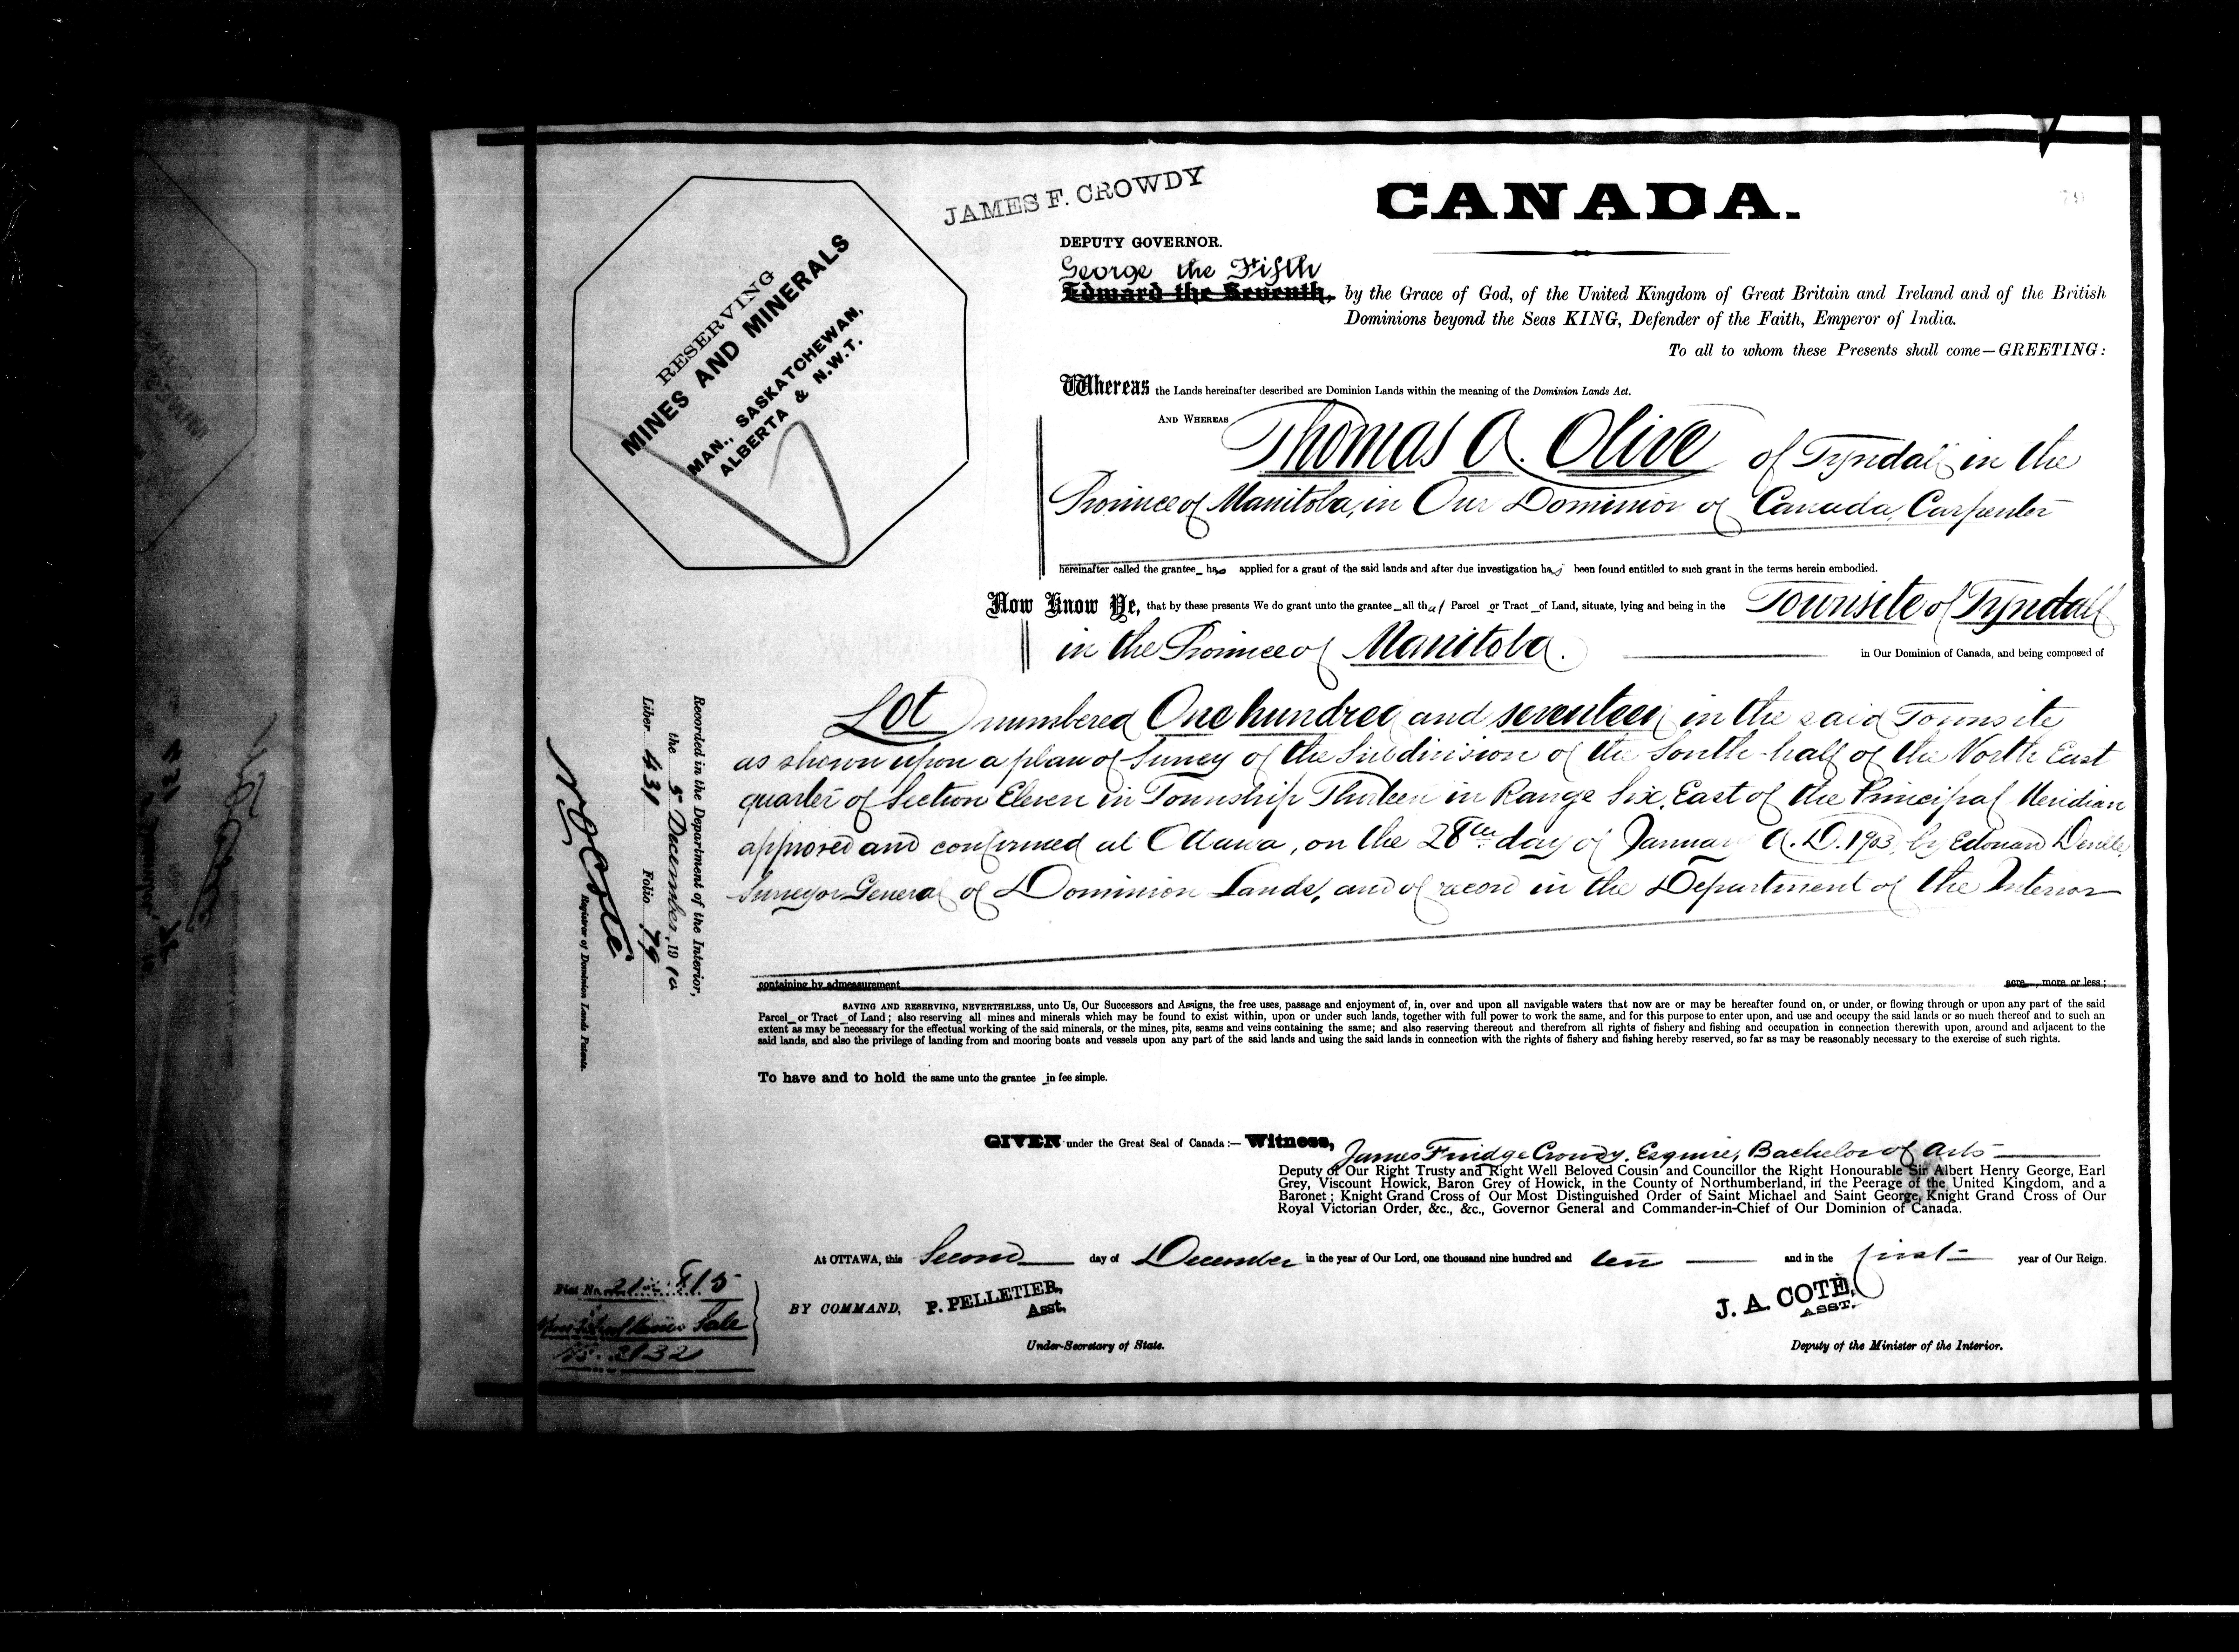 JAMES F. CROWDY
CANADA.
DEPUTY GOVERNOR.
RESERVING
MINES AND MINERALS
MAN., SASKATCHEWAN,
ALBERTA & N.W.T.
George the Fifth
Edward the Seventh, by the Grace of God, of the United Kingdom of Great Britain and Ireland and of the British
Dominions beyond the Seas KING, Defender of the Faith, Emperor of India.
To all to whom these Presents shall come—GREETING:
Whereas the Lands hereinafter described are Dominion Lands within the meaning of the Dominion Lands Act.
AND WHEREAS Thomas A. Olive of Tyndall in the
Province of Manitoba, in Our Dominion of Canada, Carpenter
hereinafter called the grantee has applied for a grant of the said lands and after due investigation has been found entitled to such grant in the terms herein embodied.
Now Know Ye, that by these presents We do grant unto the grantee all that Parcel or Tract of Land, situate, lying and being in the Townsite of Tyndall
in the Province of Manitoba. in Our Dominion of Canada, and being composed of
Lot numbered One hundred and seventeen in the said Townsite
as shown upon a plan of Survey of the Subdivision of the South half of the North East
quarter of Section Eleven in Township Thirteen in Range Six, East of the Principal Meridian
approved and confirmed at Ottawa, on the 28th day of January A.D. 1903, by Edouard Deville,
Surveyor General of Dominion Lands, and of record in the Department of the Interior
containing by admeasurement acre , more or less;
SAVING AND RESERVING, NEVERTHELESS, unto Us, Our Successors and Assigns, the free uses, passage and enjoyment of, in, over and upon all navigable waters that now are or may be hereafter found on, or under, or flowing through or upon any part of the said
Parcel or Tract of Land; also reserving all mines and minerals which may be found to exist within, upon or under such lands, together with full power to work the same, and for this purpose to enter upon, and use and occupy the said lands or so much thereof and to such an
extent as may be necessary for the effectual working of the said minerals, or the mines, pits, seams and veins containing the same; and also reserving thereout and therefrom all rights of fishery and fishing and occupation in connection therewith upon, around and adjacent to the
said lands, and also the privilege of landing from and mooring boats and vessels upon any part of the said lands and using the said lands in connection with the rights of fishery and fishing hereby reserved, so far as may be reasonably necessary to the exercise of such rights.
To have and to hold the same unto the grantee in fee simple.
GIVEN under the Great Seal of Canada:— Witness, James Fnidge Crowdy, Esquire, Bachelor of Arts
Deputy of Our Right Trusty and Right Well Beloved Cousin and Councillor the Right Honourable Sir Albert Henry George, Earl
Grey, Viscount Howick, Baron Grey of Howick, in the County of Northumberland, in the Peerage of the United Kingdom, and a
Baronet; Knight Grand Cross of Our Most Distinguished Order of Saint Michael and Saint George, Knight Grand Cross of Our
Royal Victorian Order, &c., &c., Governor General and Commander-in-Chief of Our Dominion of Canada.
At OTTAWA, this Second day of December in the year of Our Lord, one thousand nine hundred and ten and in the first year of Our Reign.
BY COMMAND, P. PELLETIER,
Asst.
Under-Secretary of State.
J. A. COTÉ,
ASST.
Deputy of the Minister of the Interior.
Recorded in the Department of the Interior,
the 5 December, 1910
Liber 431 Folio 79
N O Coté
Registrar of Dominion Lands Patents.
Fiat No. 815
Sale
No. 2132